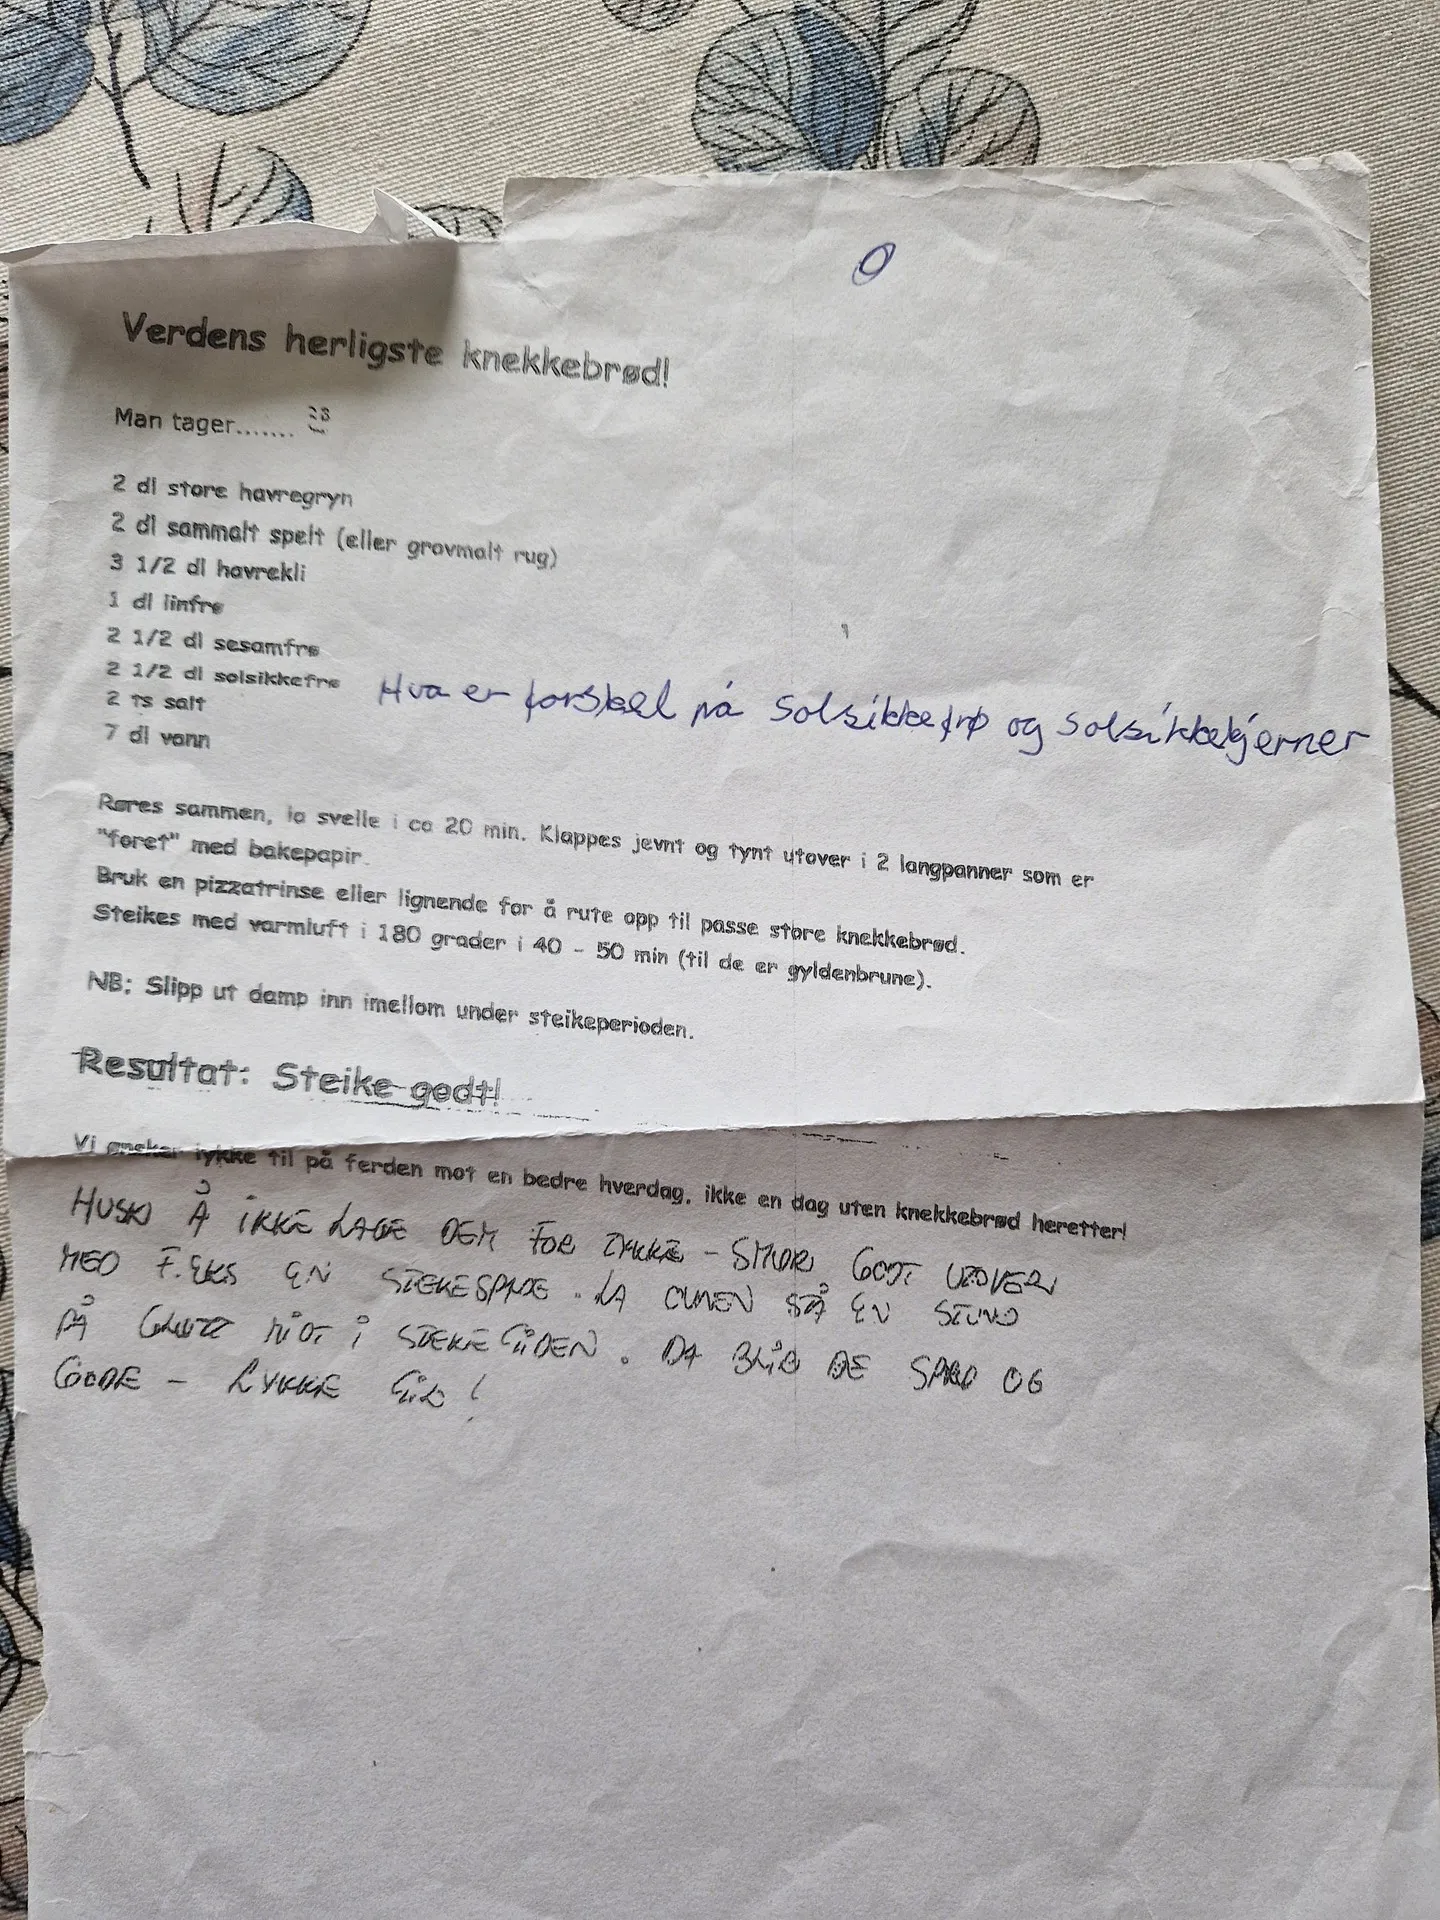 Verdens herligste knekkebrød!
Man tager.......
2 dl store havregryn
2 dl sammalt spelt (eller grovmalt rug)
3 1/2 dl havrekli
1 dl linfrø
2 1/2 dl sesamfrø
2 1/2 dl solsikkefrø Hva er forskjel på solsikkefrø og solsikkekjerner
2 ts salt
7 dl vann
Røres sammen, la svelle i ca 20 min. Klappes jevnt og tynt utover i 2 langpanner som er
"foret" med bakepapir.
Bruk en pizzatrinse eller lignende for å rute opp til passe store knekkebrød.
Steikes med varmluft i 180 grader i 40 - 50 min (til de er gyldenbrune).
NB: Slipp ut damp inn imellom under steikeperioden.
Resultat: Steike godt!
Vi ønsker lykke til på ferden mot en bedre hverdag, ikke en dag uten knekkebrød heretter!
HUSK Å IKKE LAGE DEM FOR TYKKE - SMØR GODT UTOVER
MED F.EKS EN STEKESPADE. LA OVNEN STÅ EN STUND
PÅ GLØTT MIDT I STEKETIDEN. DA BLIR DE SPRØ OG
GODE - LYKKE TIL!